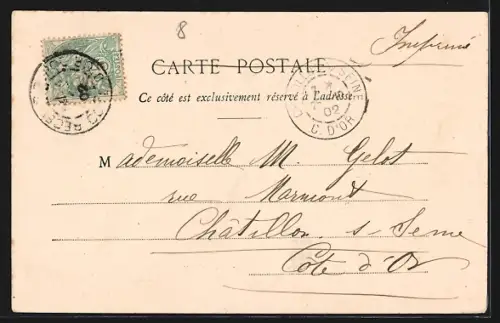 8
Imprimé
CARTE POSTALE
Ce côté est exclusivement réservé à l'adresse
CHATILLON S SEINE
02
C. D'OR
Mademoiselle M. Gelot
rue Marmont
Châtillon s- Seine
Côte d'Or